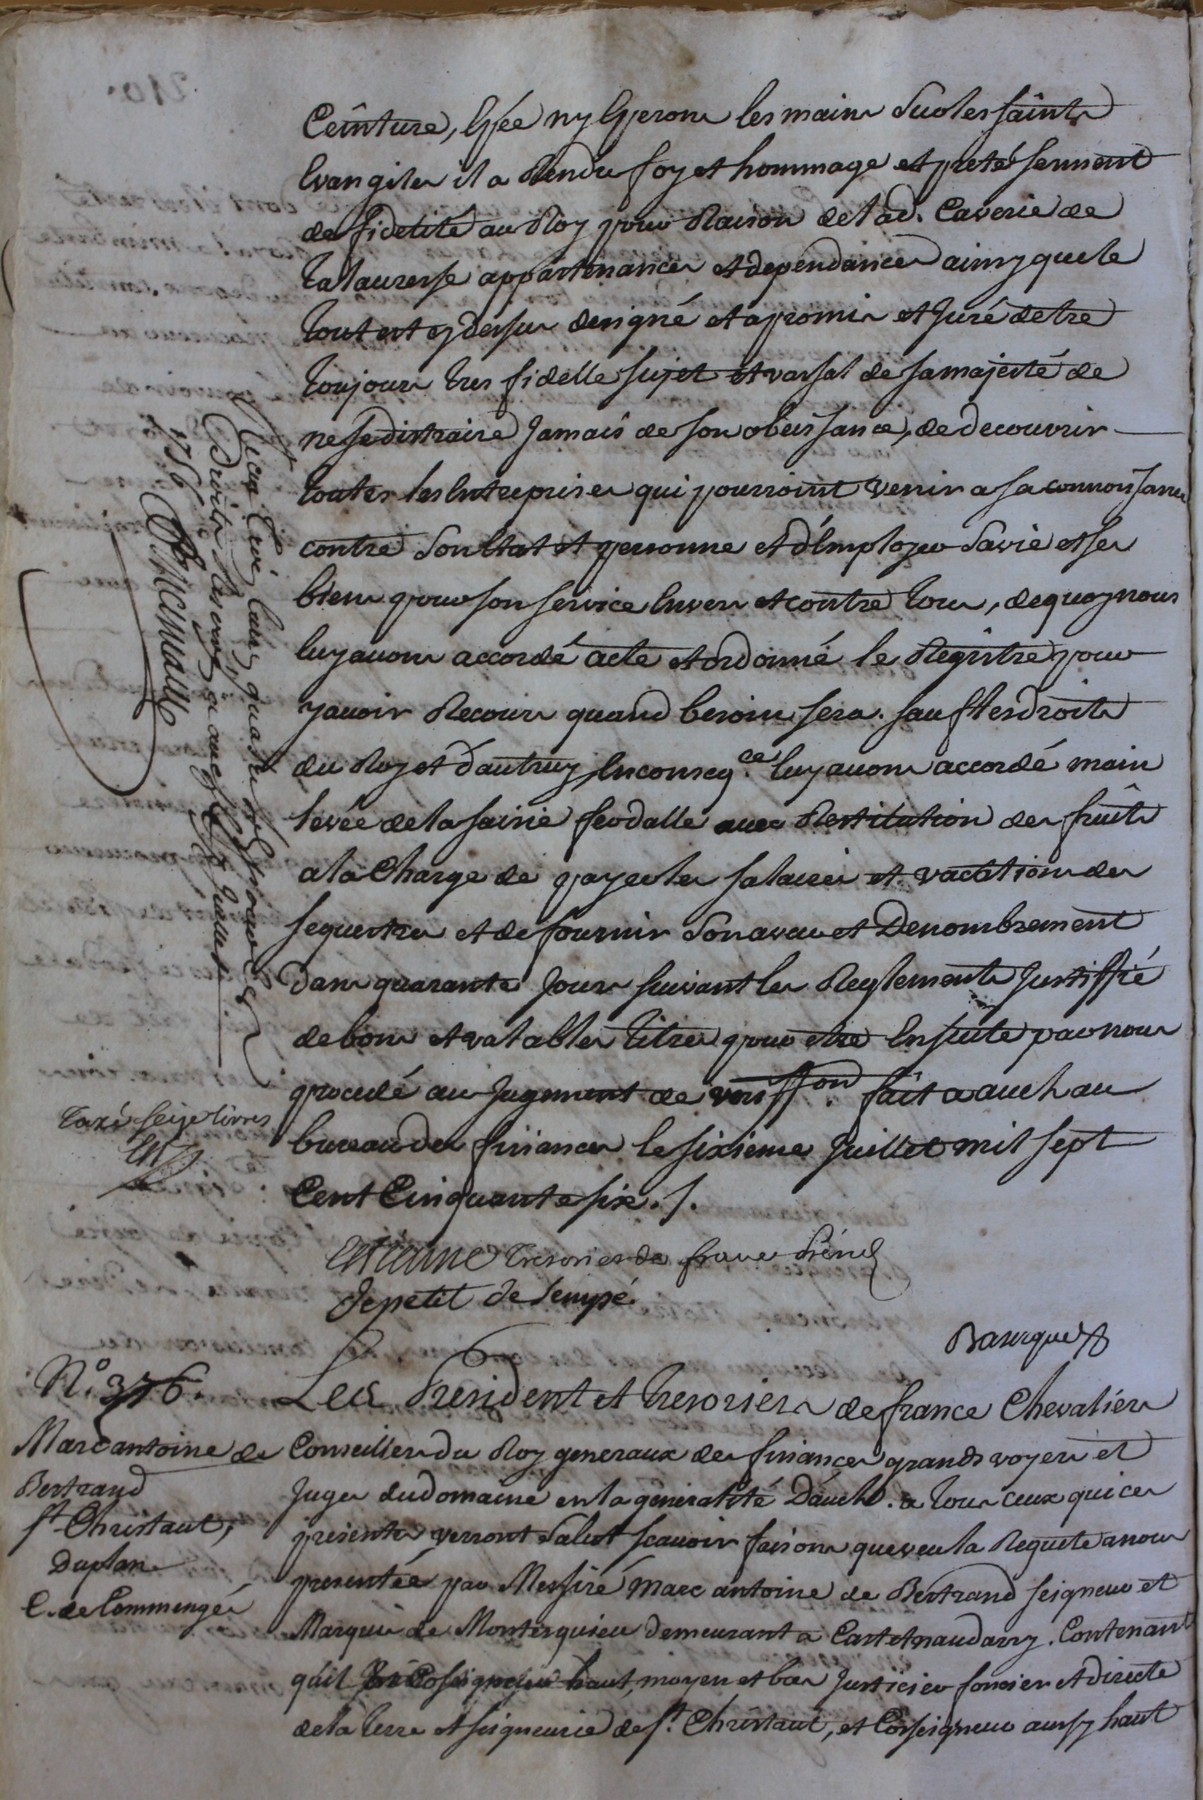 Ceinture, Epée ny Eperons les mains Sur les saints
Evangiles il a Rendu foy et hommage et preté serment
de fidelité au Roy pour Raison de lad. Caverie de
talauresse appartenances et dependances ainsy que le
tout est cy dessus designé et a promis et Juré detre
toujours tres fidelle sujet et vassal de sa majesté de
ne se distraire Jamais de son obeissance, de decouvrir
toutes les Entreprises qui pourroint venir a sa connoissance
contre Son Etat et personne et d'Employer Sa vie et ses
biens pour son service Envers et contre tous, de quoy nous
luy avons accordé acte et ordonné le Registre pour
y avoir Recours quand besoin sera. sauf les droits
du Roy et d'autruy, En conseq.ce luy avons accordé main
levée de la saisie feodalle avec Restitution des fruits
a la Charge de payer les salaires et vacations des
sequestres et de fournir Son aveu et Denombrement
dans quarante Jours suivant les Reglements Justiffié
de bons et valables titres pour etre Ensuite par nous
procedé au Jugement de veriff.on fait a auch au
bureau des finances le sixieme Juillet mil sept
Cent Cinquante six ./.
tresorier de france
Depetit de Sempé
taxé seize livres
1756
N.o 376.
Marc antoine de
Bertrand
St Christaut,
Duplan
C. de Commenges
Les President et tresoriers de france Chevaliers
Conseillers du Roy generaux des finances grands voyers et
Juges du domaine en la generalité Dauch. a tous ceux qui ces
presentes verront Salut scavoir faisons que veu la Requete a nous
presentée par Messire Marc antoine de Bertrand seigneur et
Marquis de Montesquieu demeurant a Castelnaudarry. Contenant
quil Est Coseigneur haut, moyen et bas Justicier foncier et directe
de la terre et seigneurie de St Christaut, et Coseigneur aussy haut